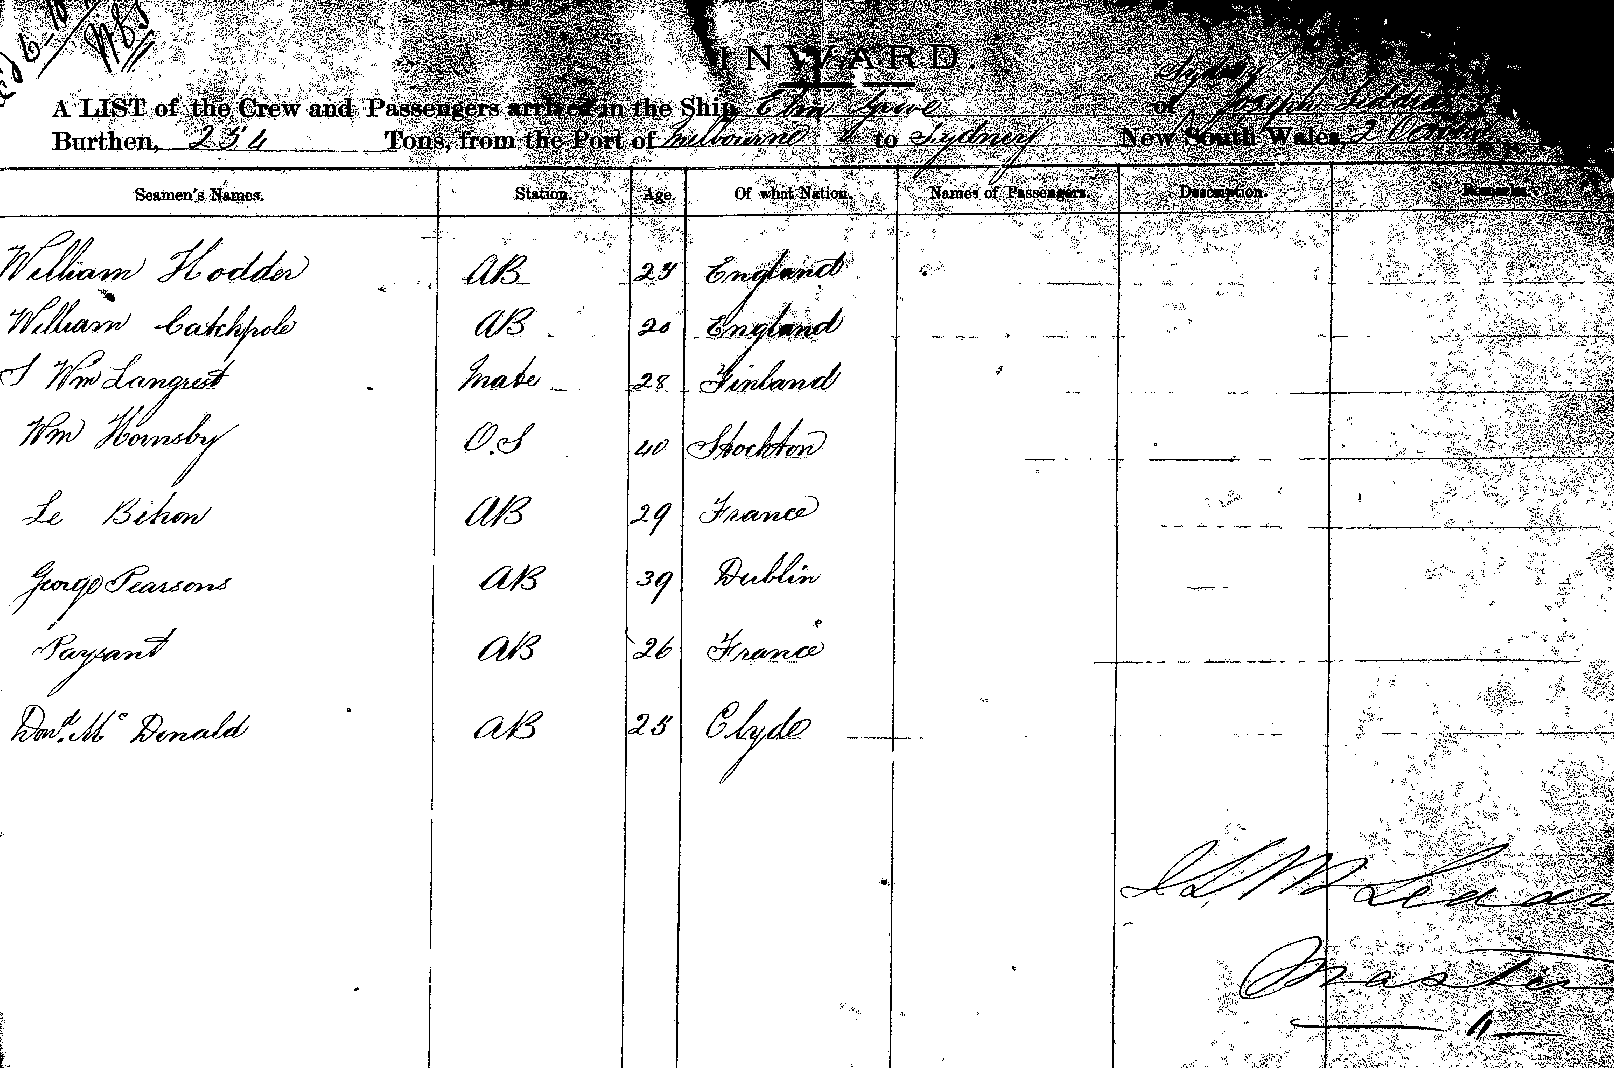 INWARD.
Sydney
A LIST of the Crew and Passengers arrived in the Ship Elm Grove of Joseph
Burthen, 254 Tons, from the Port of Melbourne to Sydney New South Wales 2 October
Seamen's Names. Station. Age. Of what Nation. Names of Passengers. Description. Remarks.
William Hodder AB 25 England
William Catchpole AB 20 England
Wm Langrest Mate 28 Finland
Wm Hornsby O.S 40 Stockton
Le Bihon AB 29 France
George Pearsons AB 39 Dublin
Paysant AB 26 France
Dond. Mc Donald AB 25 Clyde
Master